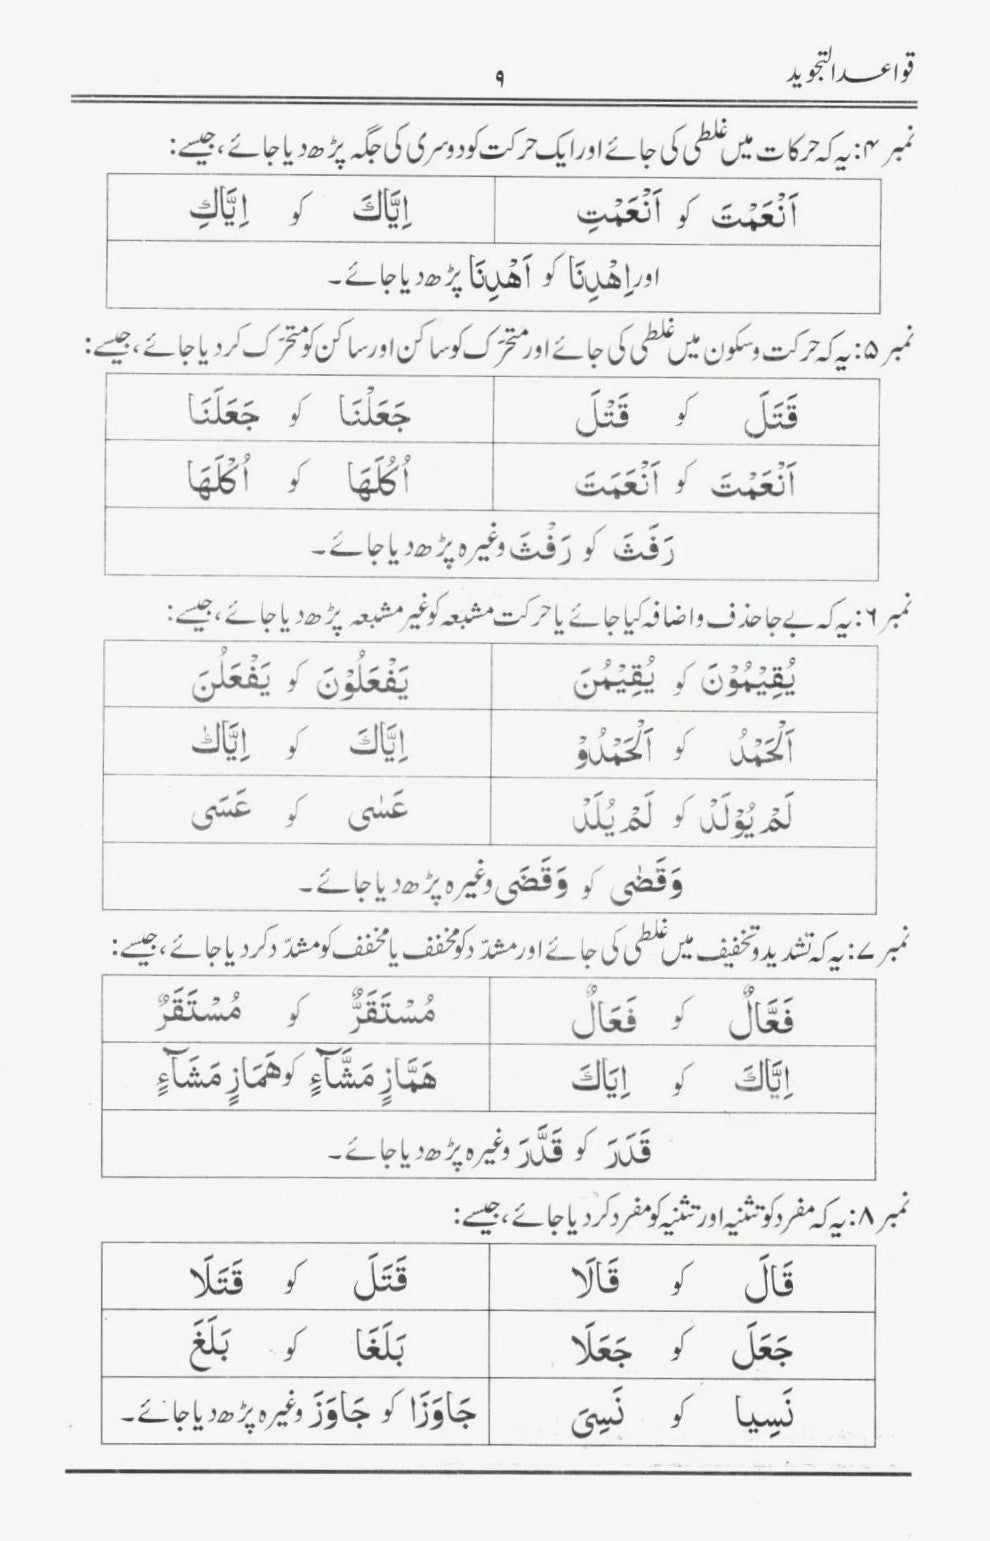 قواعد التجوید
۹
نمبر ۴: یہ کہ حرکات میں غلطی کی جائے اور ایک حرکت کو دوسری کی جگہ پڑھ دیا جائے، جیسے:
اَنْعَمْتَ کو اَنْعَمْتِ اِیَّاكَ کو اِیَّاكِ
اور اِهْدِنَا کو اَهْدِنَا پڑھ دیا جائے۔
نمبر ۵: یہ کہ حرکت و سکون میں غلطی کی جائے اور متحرّک کو ساکن اور ساکن کو متحرّک کر دیا جائے، جیسے:
قَتَلَ کو قَتْلَ جَعَلْنَا کو جَعَلَنَا
اَنْعَمْتَ کو اَنْعَمَتَ اُكُلَهَا کو اُكْلَهَا
رَفَثَ کو رَفْثَ وغیرہ پڑھ دیا جائے۔
نمبر ۶: یہ کہ بے جا حذف و اضافہ کیا جائے یا حرکت مشبعہ کو غیر مشبعہ پڑھ دیا جائے، جیسے:
یُقِیْمُوْنَ کو یُقِیْمُنَ یَفْعَلُوْنَ کو یَفْعَلُنَ
اَلْحَمْدُ کو اَلْحَمْدُوْ اِیَّاكَ کو اِیَّاكٰ
لَمْ یُوْلَدْ کو لَمْ یُلَدْ عَسٰی کو عَسَی
وَقَضٰی کو وَقَضَی وغیرہ پڑھ دیا جائے۔
نمبر ۷: یہ کہ تشدید و تخفیف میں غلطی کی جائے اور مشدّد کو مخفف یا مخفف کو مشدّد کر دیا جائے، جیسے:
فَعَّالٌ کو فَعَالٌ مُسْتَقَرٌّ کو مُسْتَقَرٌ
اِیَّاكَ کو اِیَاكَ هَمَّازٍ مَشَّآءٍ کو هَمَازٍ مَشَآءٍ
قَدَرَ کو قَدَّرَ وغیرہ پڑھ دیا جائے۔
نمبر ۸: یہ کہ مفرد کو تثنیہ اور تثنیہ کو مفرد کر دیا جائے، جیسے:
قَالَ کو قَالَا قَتَلَ کو قَتَلَا
جَعَلَ کو جَعَلَا بَلَغَا کو بَلَغَ
نَسِیا کو نَسِیَ جَاوَزَا کو جَاوَزَ وغیرہ پڑھ دیا جائے۔